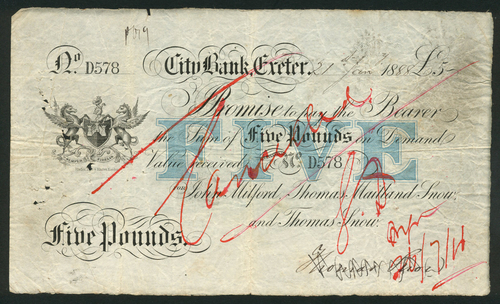 No D578
City Bank, Exeter. 21 Jan 1888 £5
I Promise to pay the Bearer
the Sum of Five Pounds on Demand
Value received No D578
FIVE
for John Milford, Thomas Maitland Snow,
and Thomas Snow.
Five Pounds.
Cancelled